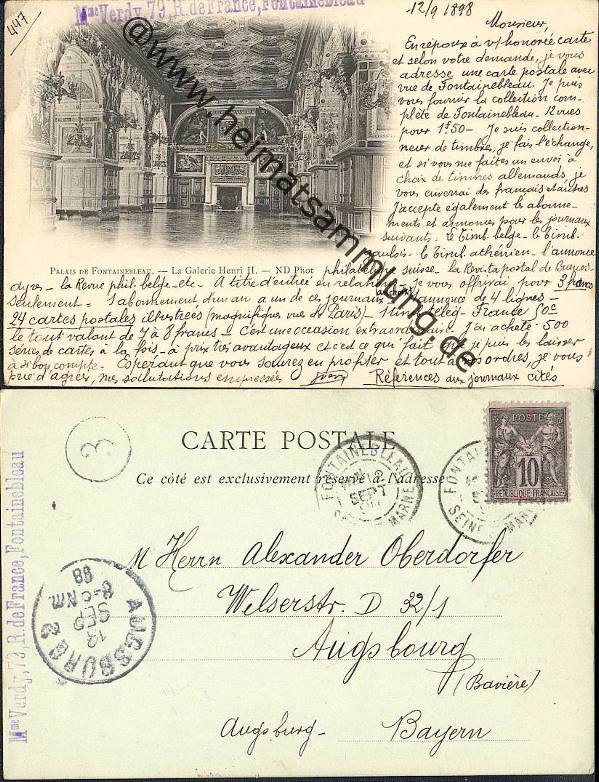 Mme Verdy, 79, R. de France, Fontainebleau
447
12/9 1898
Monsieur,
En réponse à v/ honorée carte
et selon votre demande, je vous
adresse une carte postale avec
vue de Fontainebleau. Je puis
vous fournir la collection com-
plète de Fontainebleau - 12 vues
pour 1f50 - Je suis collection-
neur de timbre, je fais l'échange,
et si vous me faites un envoi à
choix de timbres allemands, je
vous enverrai des français et autres
J'accepte également les abonne-
ments et annonces pour les journaux
suivants. Le timb. belge - le timb.
le timb. athénien. l'annonce
PALAIS DE FONTAINEBLEAU. — La Galerie Henri II. — ND Phot
philatélique suisse - La Revista postal de
- la Revue phil. belge - etc - A titre d'entrée en relations je vous offrirai pour 3 francs
seulement = 1 abonnement d'un an a un de ces journaux 1 annonce de 4 lignes -
24 cartes postales illustrées (magnifiques vues de Paris) - France
le tout valant de 7 à 8 francs - C'est une occasion extraordinaire - J'ai acheté 500
séries de cartes à la fois - à prix très avantageux et c'est ce qui fait que je puis les laisser
à si bon compte - Espérant que vous saurez en profiter et tout à vos ordres, je vous
prie d'agréer, mes salutations empressées
Références aux journaux cités
@www.heimatsammlung.de
3
CARTE POSTALE
Ce côté est exclusivement réservé à l'adresse
FONTAINEBLEAU
SEPT
SEINE MARNE
FONTAINEBLEAU
SEINE MARNE
POSTE
10
REPUBLIQUE FRANÇAISE
M Herrn Alexander Oberdorfer
Welserstr. D 32/1
Augsbourg
(Bavière)
Augsburg - Bayern
AUGSBURG 2
13
SEP
8-9 Nm.
98
Mme Verdy, 79, R. de France, Fontainebleau